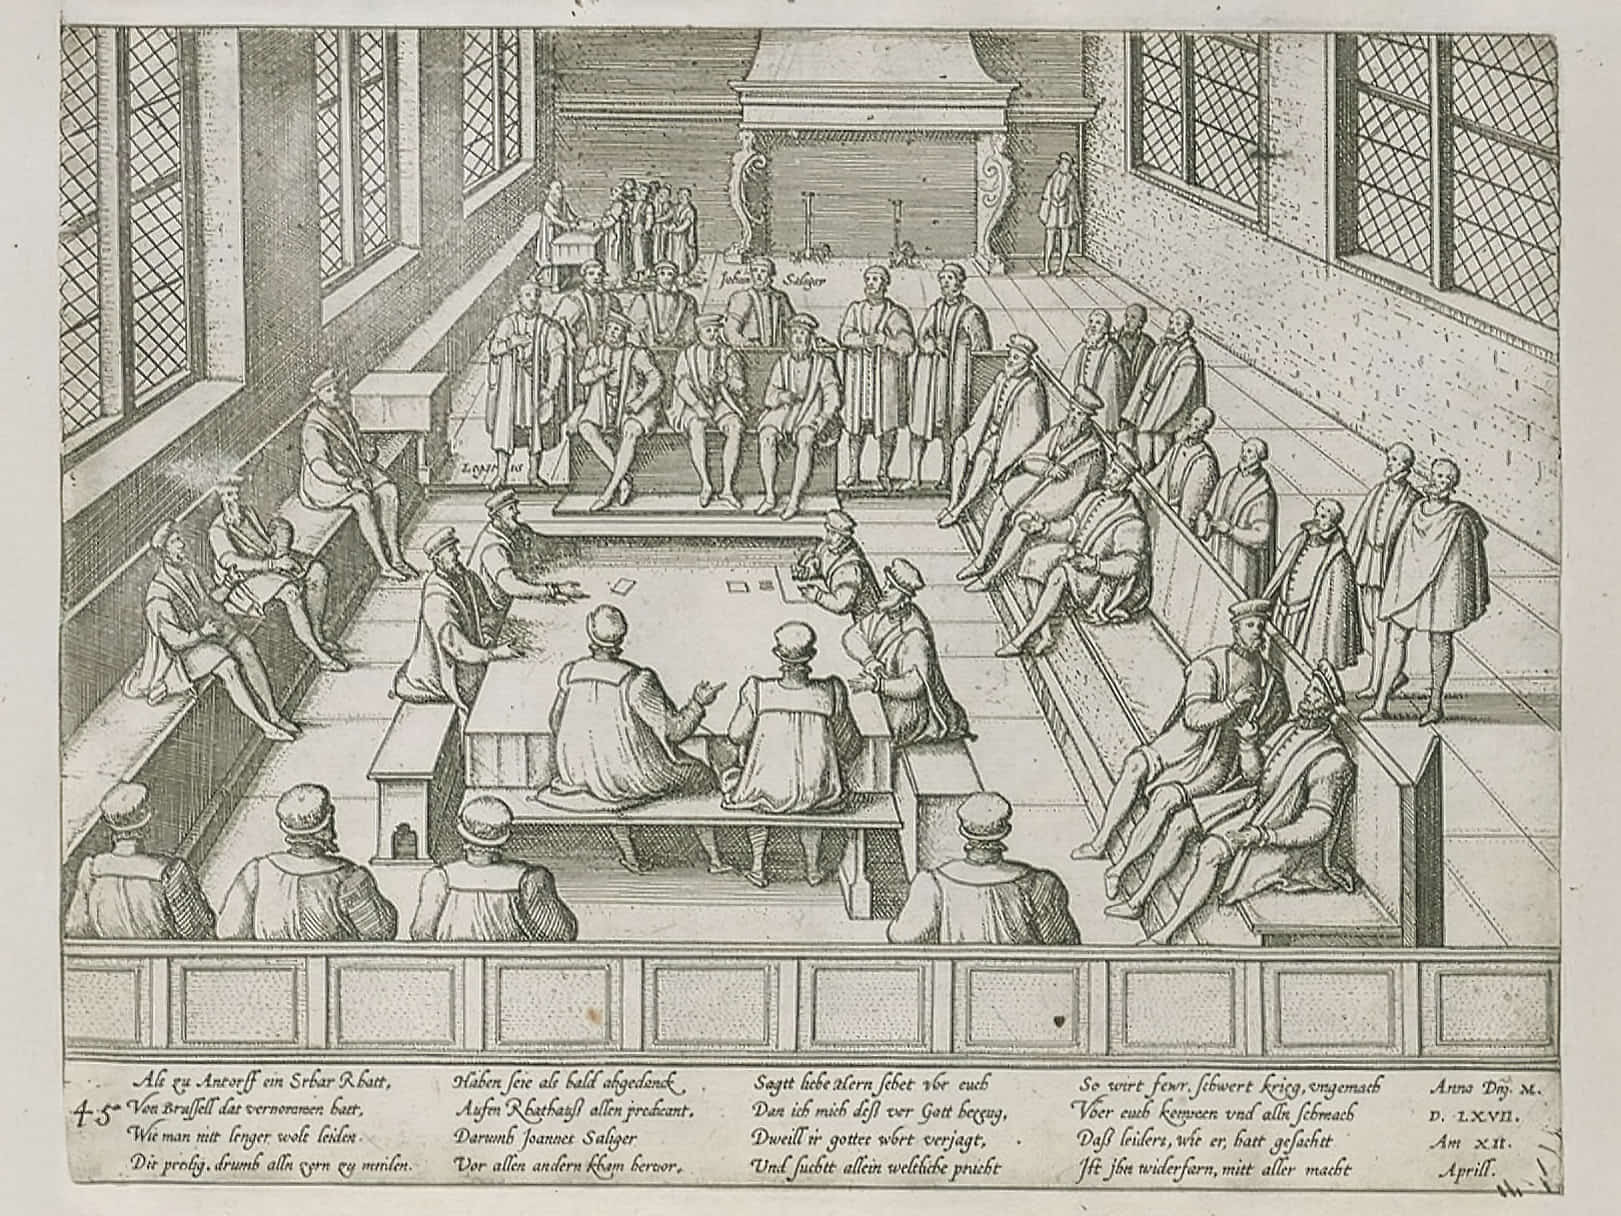 Johan Saliger
Als zu Antorff ein Erbar Rhatt,
Von Brussell dat vernommen hatt,
Wie man nitt lenger wolt leiden
Die predig, drumb alln zorn zu meiden.
Haben seie als bald abgedanck
Aufm Rhathausz allen predicant,
Darumb Joannes Saliger
Vor allen andern kham hervor,
Sagtt liebe Hern sehet vor euch
Dan ich mich desz vor Gott bezeug,
Dweill ir gottes wort verjagt,
Und suchtt allein weltliche pracht
So wirt fewr, schwert krieg, ungemach
Vber euch kommen vnd alln schmach
Dasz leiders, wie er, hatt gesachtt
Jst jhn widerfarn, mitt aller macht
Anno Dnj. M.
D. LXVII.
Am XII.
Aprill.
45